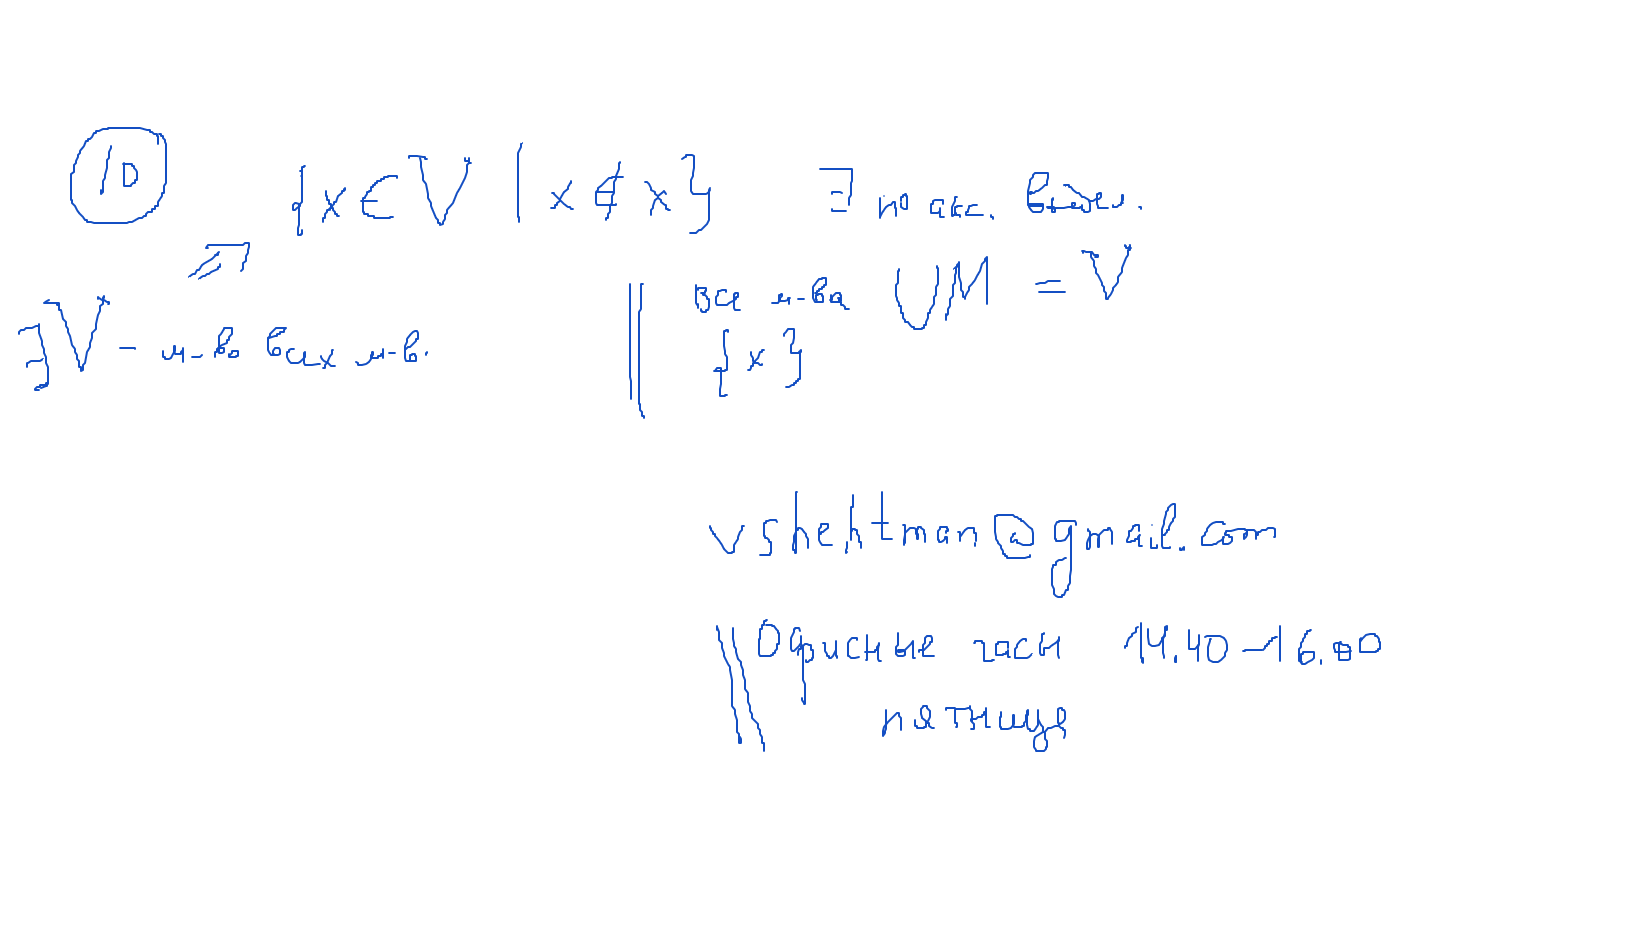 10
{x ∈ V | x ∉ x} ∃ по акс. выдел.
∃ V – м-во всех м-в.
все м-ва ∪M = V
{x}
vshehtman@gmail.com
Офисные часы 14.40–16.00
пятница